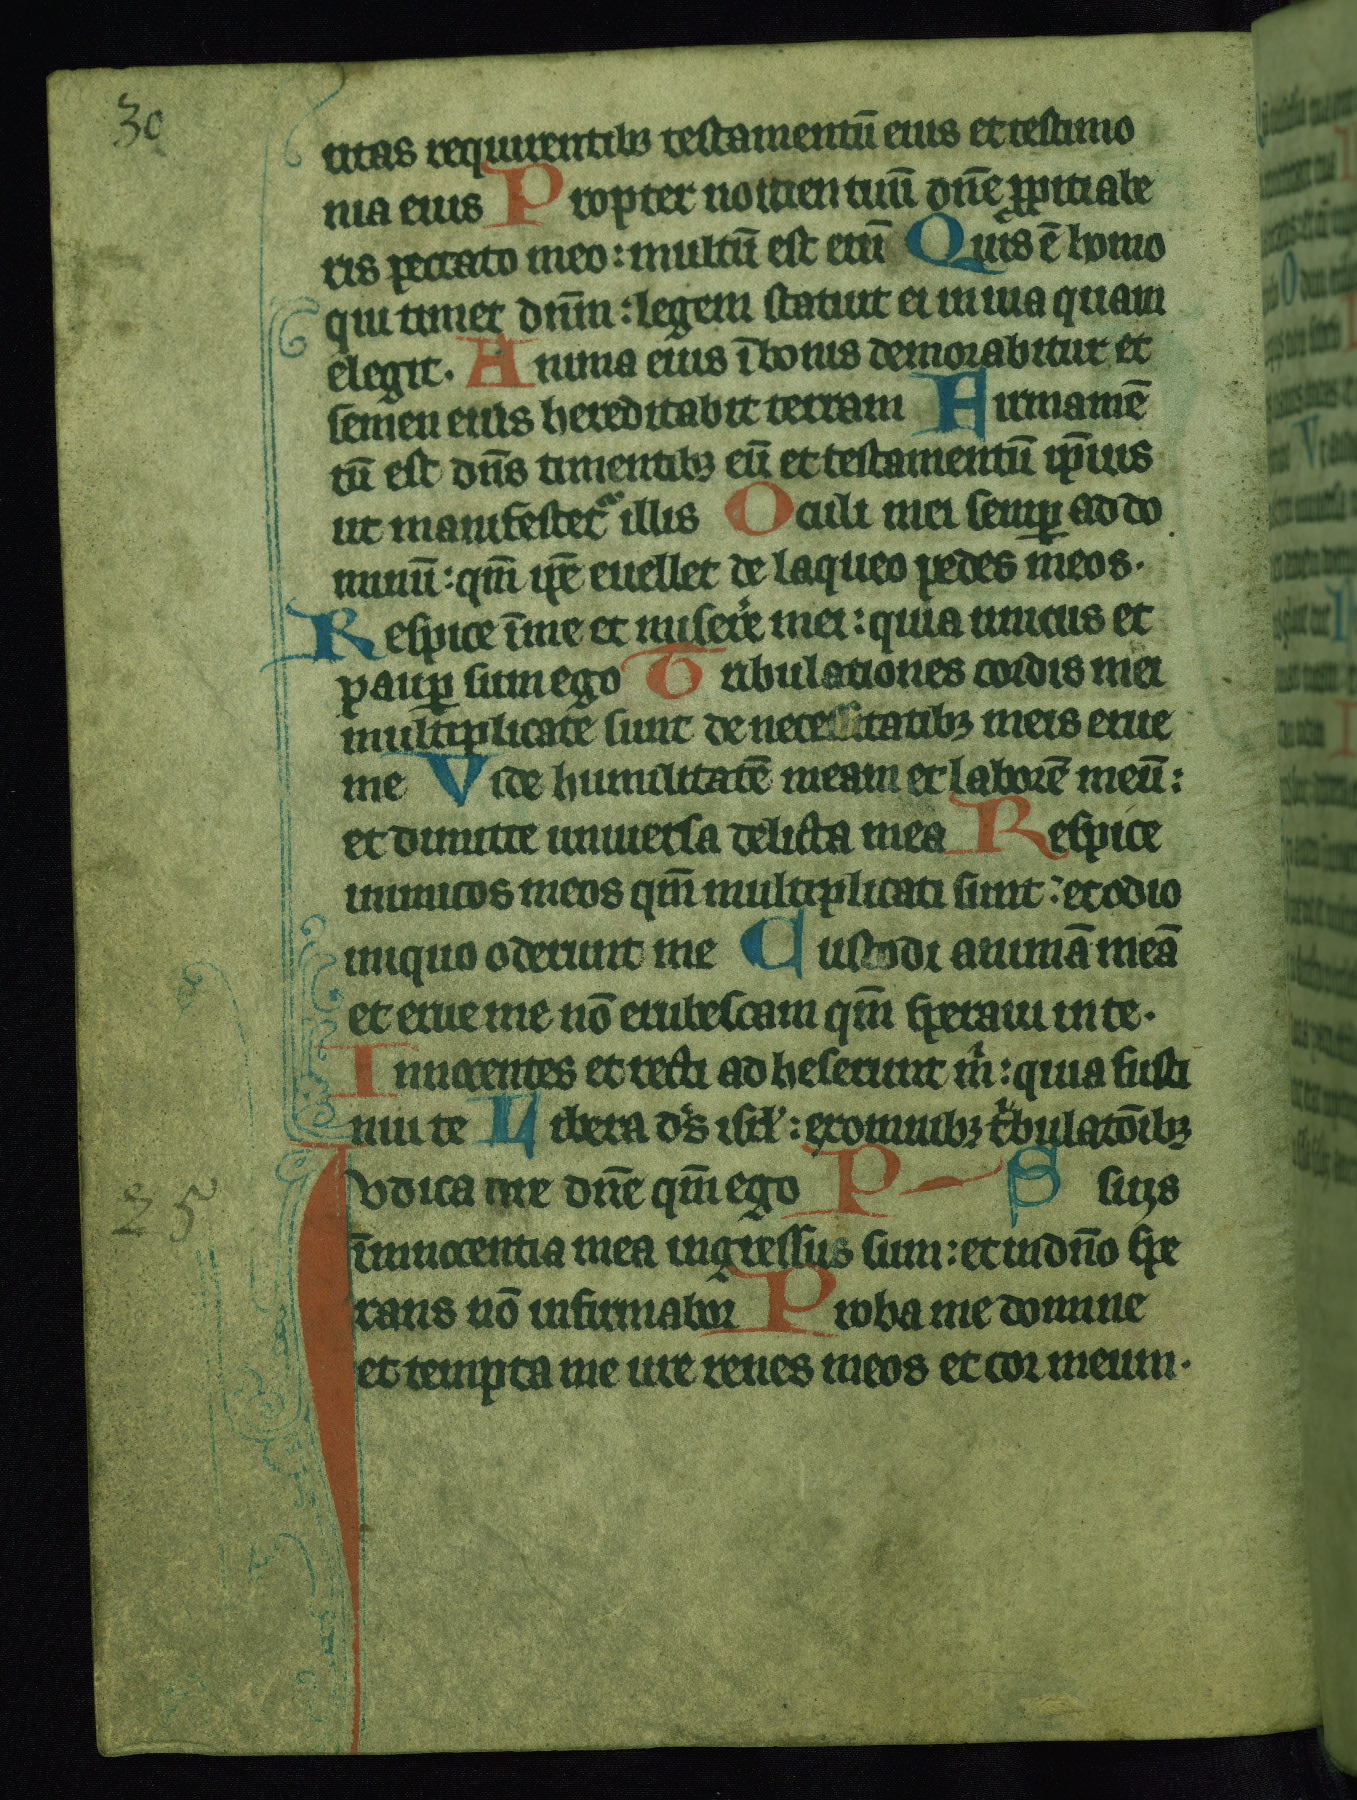 30
ritas requirentib; testamentū eius et testimo
nia eius Propter nomen tuū dn̄e ꝓpitiabe
ris peccato meo : multū est enī Quis ē homo
qui timet dn̄m : legem statuit ei in uia quam
elegit. Anima eius ī bonis demorabitur et
semen eius hereditabit terram Firmamē
tū est dn̄s timentib; eū et testamentū ip̄ius
ut manifestet᷑ illis Oculi mei semꝑ ad do
minū : qm̄ ip̄e euellet de laqueo pedes meos.
Respice ī me et misere mei : quia unicus et
pauꝑ sum ego Tribulationes cordis mei
multiplicate sunt de necessitatib; meis erue
me Vide humilitatē meam et laborē meū :
et dimitte uniuersa delicta mea Respice
inimicos meos qm̄ multiplicati sunt : et odio
iniquo oderunt me Custodi animā meā
et erue me nō erubescam qm̄ speraui in te.
Innocentes et recti adheserunt m̄ : quia susti
nui te Libera ds̄ isrl̄ : ex omnib; tⁱbulatōib;
25
Iudica me dn̄e qm̄ ego P S
ī innocentia mea ingressus sum : et in dn̄o spe
rans nō infirmabor Proba me domine
et tempta me ure renes meos et cor meum.